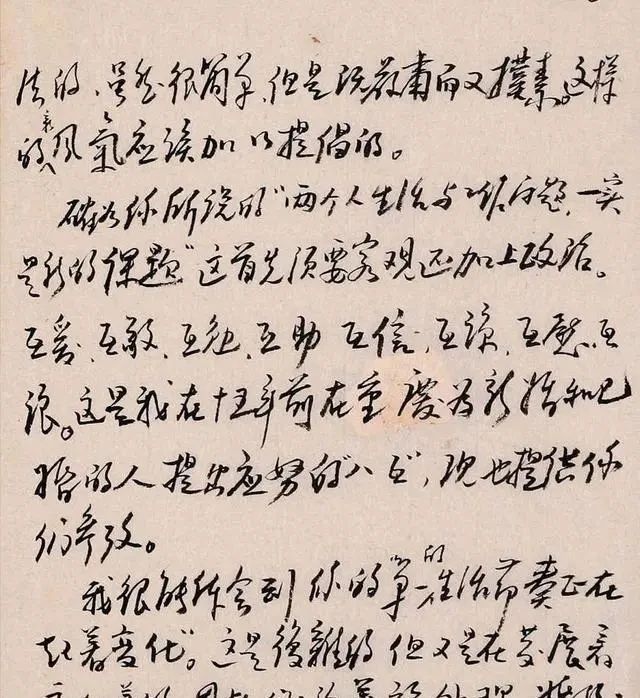 法的，虽然很简单，但是既严肃而又朴素。这样
的风气应该加以提倡的。
确如你所说的“两个人生活与工作问题，一实
是新的课题”这首先须要客观还加上政治。
互爱，互敬，互勉，互助，互信，互谅，互慰，互
让。这是我在十五年前在重庆为新婚和已
婚的人提出应努的“八互”，现也提供你
们参考。
我很能体会到你的“单一的生活节奏正在
起着变化”。这是复杂的但又是在发展着